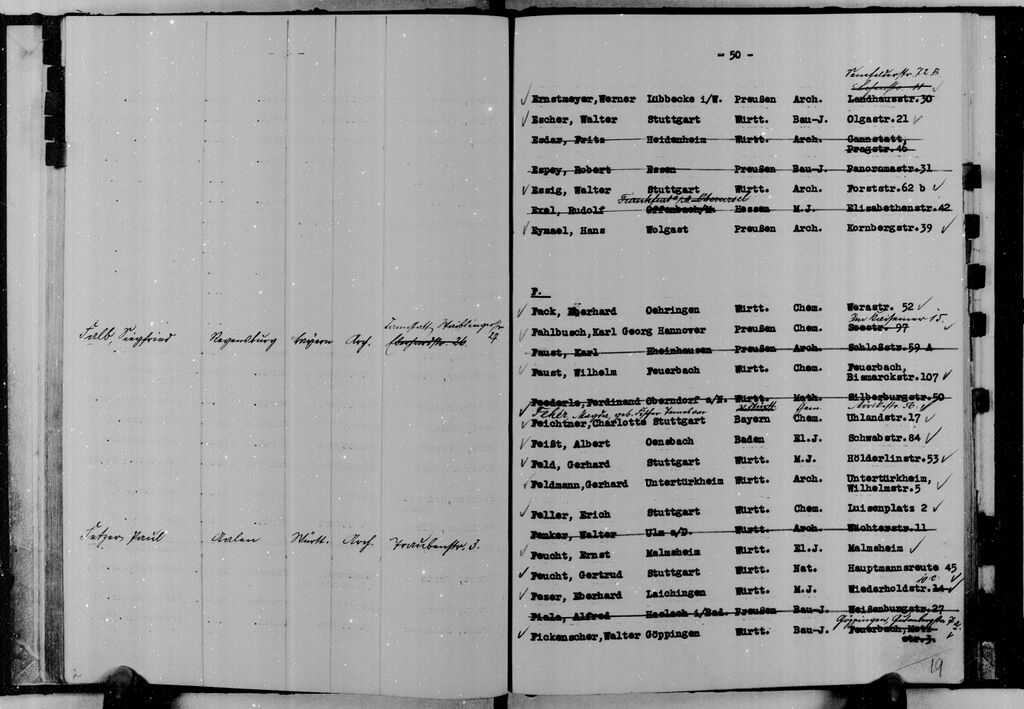 Falb, Siegfried Regensburg Bayern Arch. Cannstatt, Waiblingerstr. 27
Eberhardstr. 26
Fetzer, Paul Aalen Württ. Arch. Traubenstr. 3.
- 50 -
Senefelderstr. 72 B
Ernstmeyer,Werner Lübbecke i/W. Preußen Arch. Landhausstr.30
Escher, Walter Stuttgart Württ. Bau-J. Olgastr.21
Esdar, Fritz Heidenheim Württ. Arch. Cannstatt,
Pragstr.46
Espey, Robert Essen Preußen Bau-J. Panoramastr.31
Essig, Walter Stuttgart Württ. Arch. Forststr.62 b
Frankfurt a/M. Oberursel
Exel, Rudolf Offenbach/M. Hessen M.J. Elisabethenstr.42
Eymael, Hans Wolgast Preußen Arch. Kornbergstr.39
F.
Fack, Eberhard Oehringen Württ. Chem. Werastr. 52
Im Kaisemer 15.
Fahlbusch,Karl Georg Hannover Preußen Chem. Seestr. 97
Faust, Karl Rheinhausen Preußen Arch. Schloßstr.59 A
Faust, Wilhelm Feuerbach Württ. Chem. Feuerbach,
Bismarckstr.107
Feederle,Ferdinand Oberndorf a/N. Württ. Math. Silberburgstr.50
Feher, Magda, geb. Chem.
Feichtner,Charlotte Stuttgart Bayern Chem. Uhlandstr.17
Feißt, Albert Oensbach Baden El.J. Schwabstr.84
Feld, Gerhard Stuttgart Württ. M.J. Hölderlinstr.53
Feldmann,Gerhard Untertürkheim Württ. Arch. Untertürkheim,
Wilhelmstr.5
Feller, Erich Stuttgart Württ. Chem. Luisenplatz 2
Fenker, Walter Ulm a/D. Württ. Arch. Wächterstr.11
Feucht, Ernst Malmsheim Württ. El.J. Malmsheim
Feucht, Gertrud Stuttgart Württ. Nat. Hauptmannsreute 45
10 c.
Fezer, Eberhard Laichingen Württ. M.J. Wiederholdstr.14
Fiele, Alfred Haslach i/Bad. Preußen Bau-J. Weißenburgstr.27
Göppingen, Gutenbergstr.
Fickenscher,Walter Göppingen Württ. Bau-J. Feuerbach,
str.3.
19